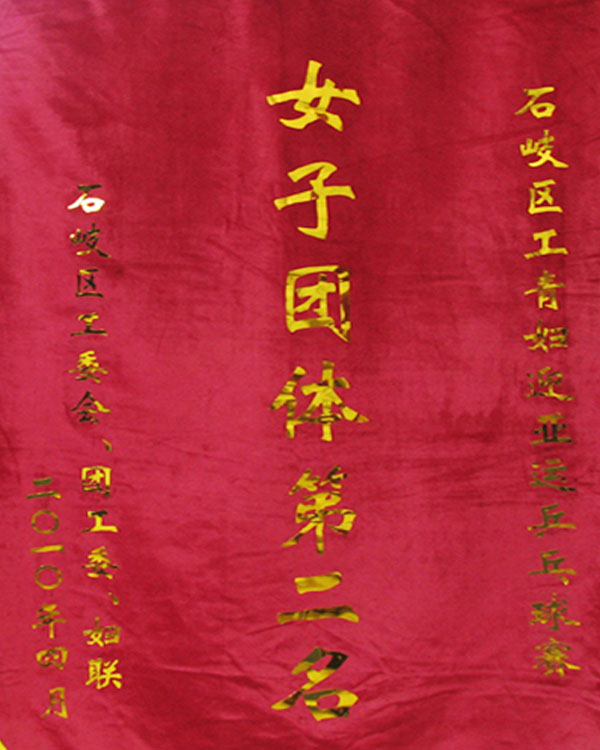 石岐区工青妇迎亚运乒乓球赛
女子团体第二名
石岐区工委会、团工委、妇联
二〇一〇年四月